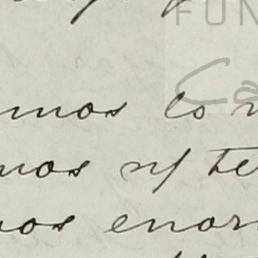 FUN
Ca
mos lo n
mos n/ te
nos enor